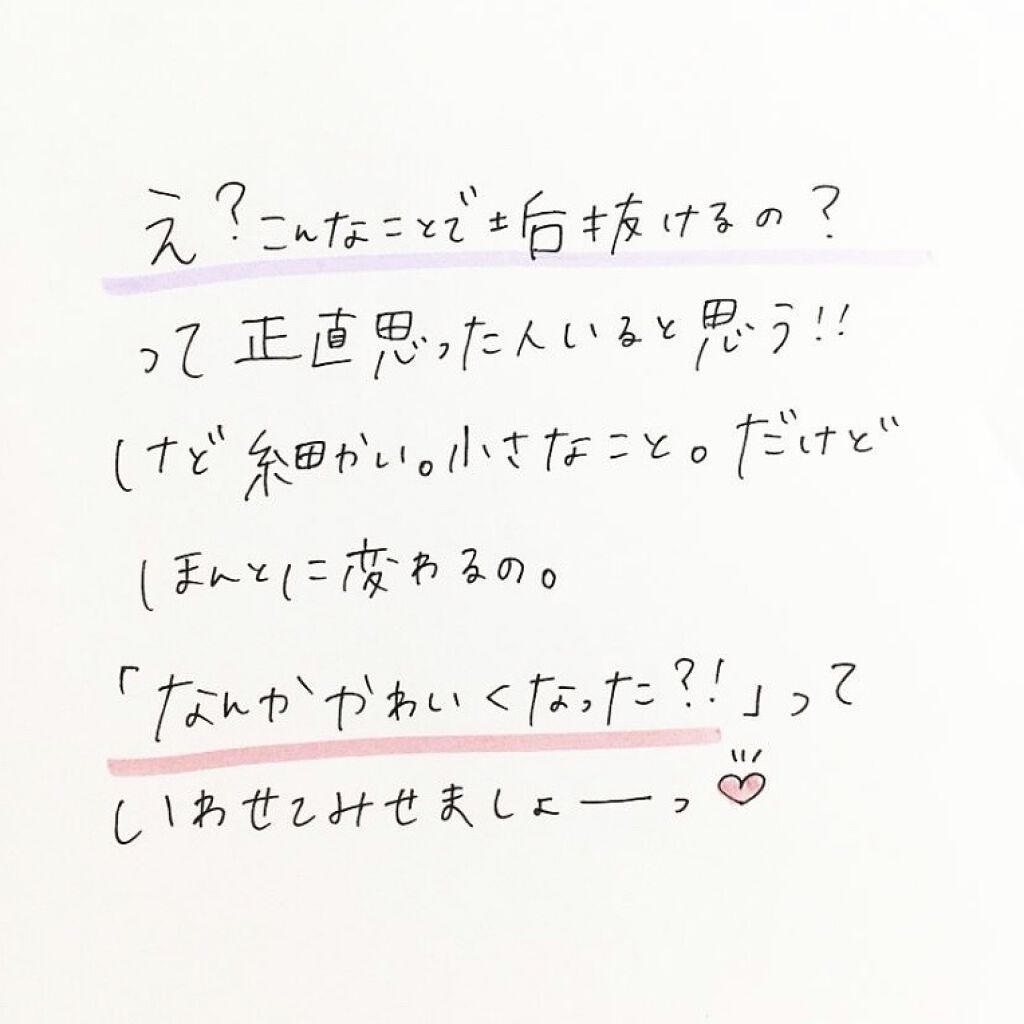 え?こんなことで垢抜けるの?
って正直思った人いると思う!!
けど細かい。小さなこと。だけど
ほんとに変わるの。
「なんかかわいくなった?!」って
いわせてみせましょーっ